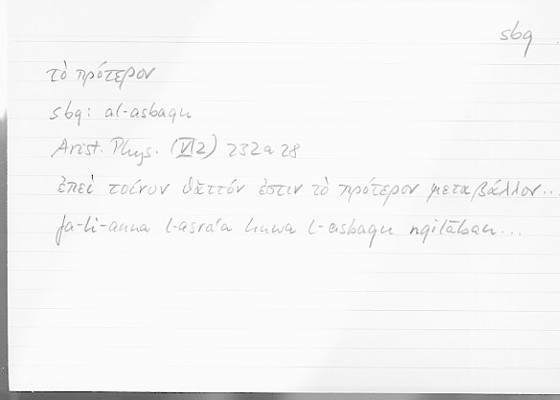 sbq
τὸ πρότερον
sbq: al-asbaqu
Arist. Phys. (VI 2) 232a28
ἐπεὶ τοίνυν θᾶττόν ἐστιν τὸ πρότερον μεταβάλλον...
fa-li-anna l-asraʿa huwa l-asbaqu nqilāban...